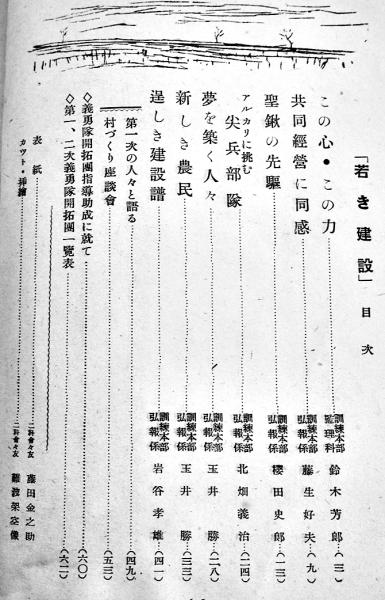 「若き建設」 目次
この心・この力 訓練本部 監理科 鈴木芳郎 (三)
共同經營に同感 訓練本部 弘報係 藤生好夫 (九)
聖鍬の先驅 訓練本部 弘報係 櫻田史郎 (一三)
アルカリに挑む 尖兵部隊 訓練本部 弘報係 北畑義治 (二四)
夢を築く人々 訓練本部 弘報係 玉井勝 (二八)
新しき農民 訓練本部 弘報係 玉井勝 (三三)
逞しき建設譜 訓練本部 弘報係 岩谷孝雄 (四一)
第一次の人々と語る (四九)
村づくり座談會 (五三)
◇義勇隊開拓團指導助成に就て (六〇)
◇第一、二次義勇隊開拓團一覽表 (六二)
表紙 二科會々友 藤田金之助
カット・挿繪 二科會々友 難波架空像